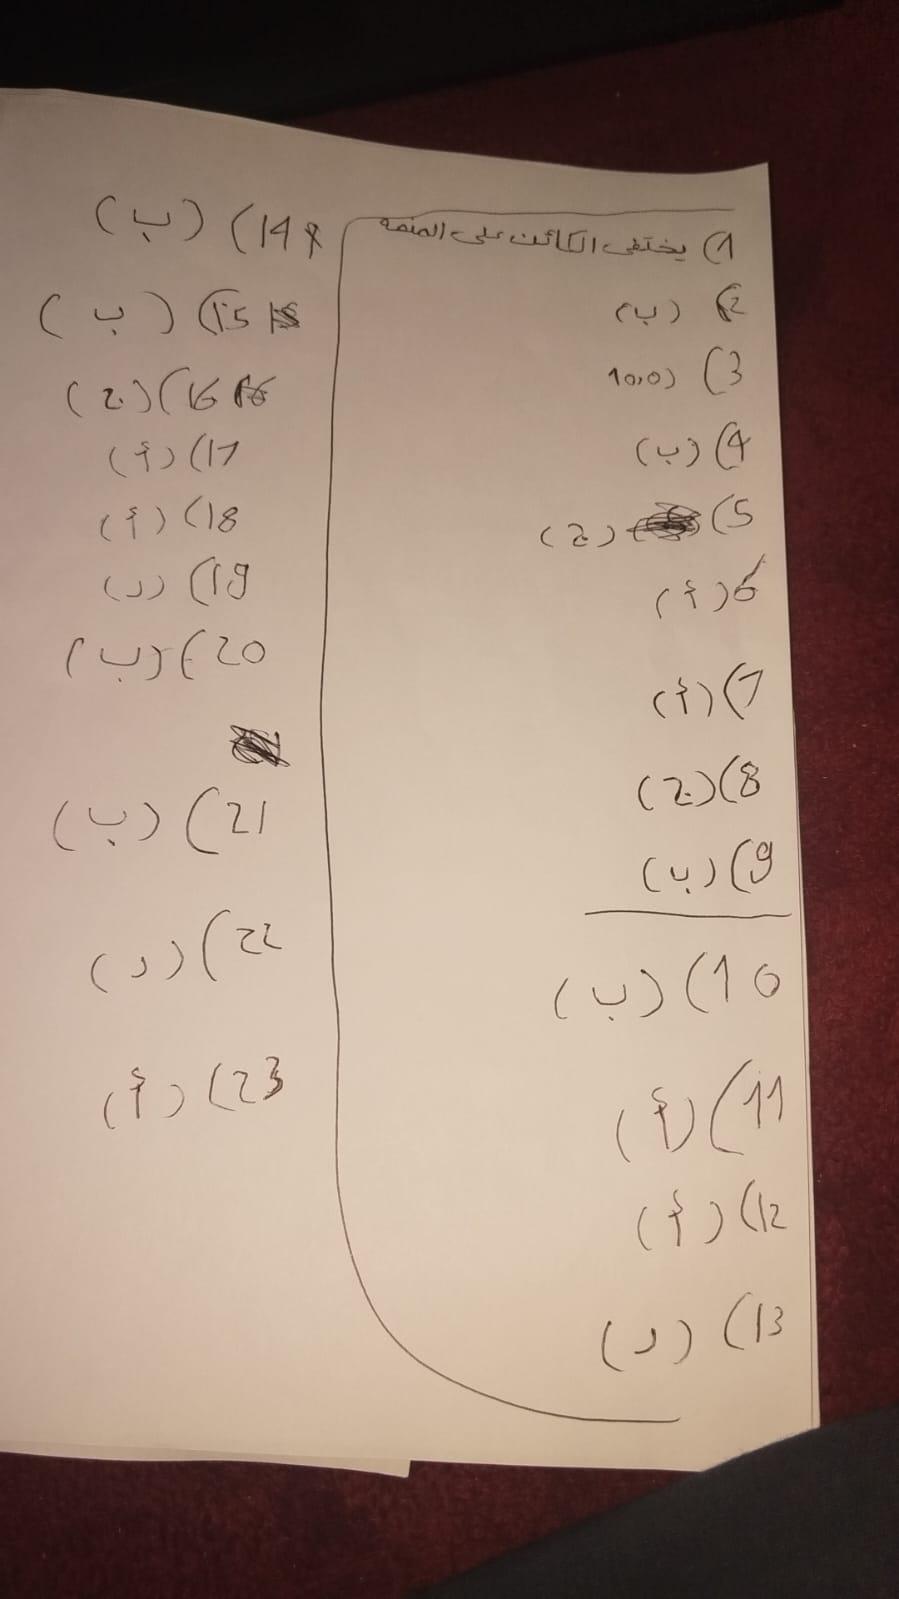 1) يختفى الكائن على المنصه
2) (ب)
3) (10,0
4) (ب)
5) (ج)
6) (أ)
7) (أ)
8) (ج)
9) (ب)
10) (ب)
11) (أ)
12) (أ)
13) (د)
14) (ب)
15) (ب)
16) (ج)
17) (أ)
18) (أ)
19) (د)
20) (ب)
21) (ب)
22) (د)
23) (أ)